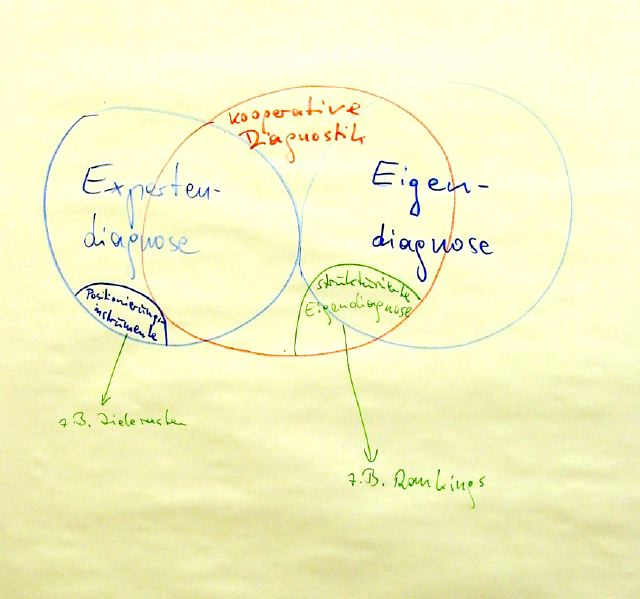 kooperative
Diagnostik
Experten-
diagnose
Eigen-
diagnose
Positionierungs-
instrumente
strukturierte
Eigendiagnose
z.B.
z.B. Rankings